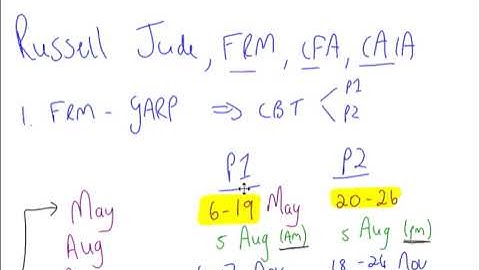 Russell Jude, FRM, CFA, CAIA
1. FRM - GARP ⇒ CBT < P1
P2
P1 P2
May 6-19 May 20-26
Aug 5 Aug (AM) 5 Aug (pm)
Nov 18-24 Nov